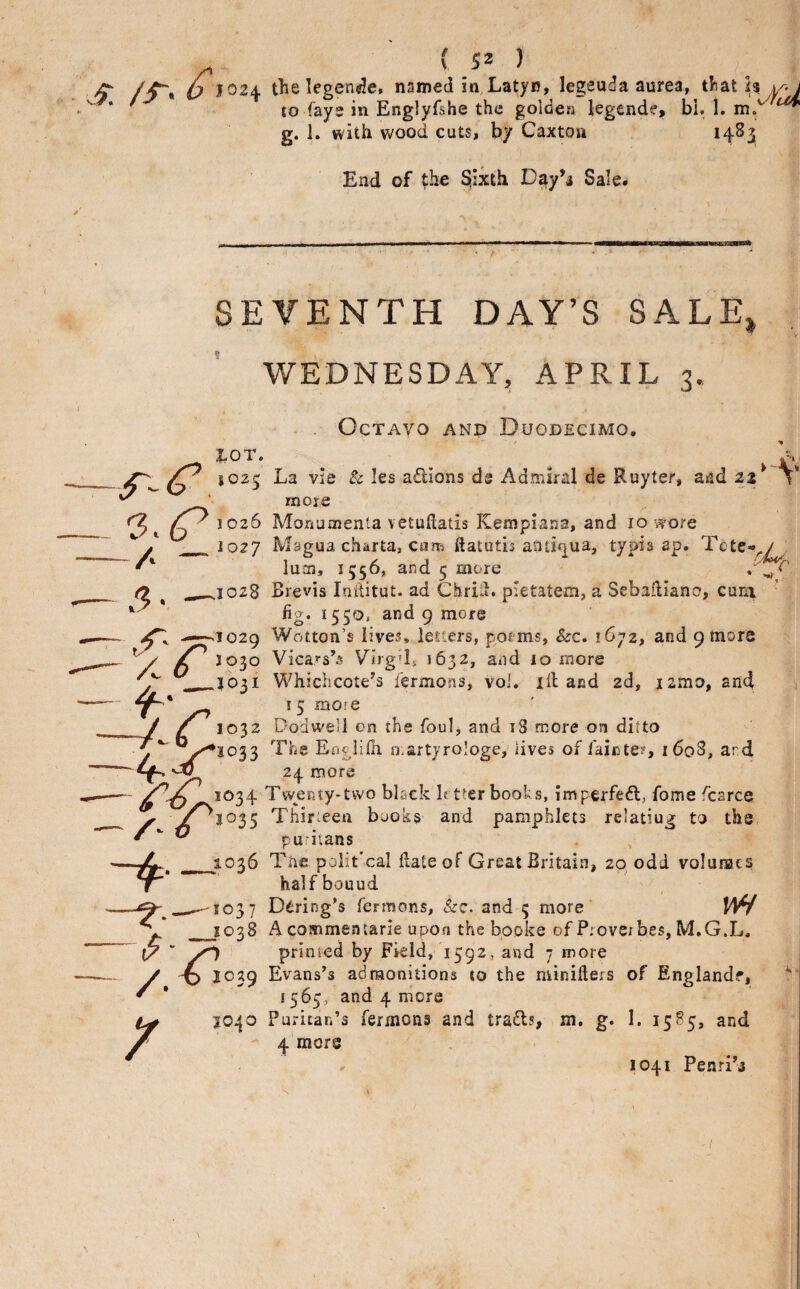 ( 52 )
5. 15. 6 1024 the legende, named in Latyn, legeuda aurea, that is
to ſaye in Englyſshe the golden legende, bl. l. m.
g. l. with wood cuts, by Caxton 1483
End of the Sixth Day's Sale.
SEVENTH DAY'S SALE,
WEDNESDAY, APRIL 3.
OCTAVO AND DUODECIMO.
LOT.
5 - 6 1025 La vie & les actions de Admiral de Ruyter, and 22
more
3. 6 1026 Monumenta vetuſtatis Kempiana, and 10 more
1 1027 Magua charta, cum ſtatutis antiqua, typis ap. Tote-
lum, 1556, and 5 more
3. 1028 Brevis Inſtitut. ad Chriſt. pietatem, a Sebaſtiano, cum
fig. 1550, and 9 more
1029 Wotton's lives, letters, poems, &c. 1672, and 9 more
1030 Vicars's Virgil, 1632, and 10 more
1031 Whichcote's ſermons, vol. 1ſt and 2d, 12mo, and
15 more
1032 Dodwell on the ſoul, and 18 more on ditto
1033 The Engliſh martyrologe, lives of ſaintes, 1608, and
24 more
1034 Twenty-two black letter books, imperfect, ſome ſcarce
1035 Thirteen books and pamphlets relatiug to the
puritans
4. 1036 The polit'cal ſtate of Great Britain, 20 odd volumes
half bouud
1037 Dering's ſermons, &c. and 5 more
1038 A commentarie upon the booke of Proverbes, M.G.L.
printed by Field, 1592, and 7 more
1. 6 1039 Evans's admonitions to the miniſters of Englande,
1565, and 4 more
1040 Puritan's ſermons and tracts, m. g. l. 1585, and
4 more
1041 Penri's